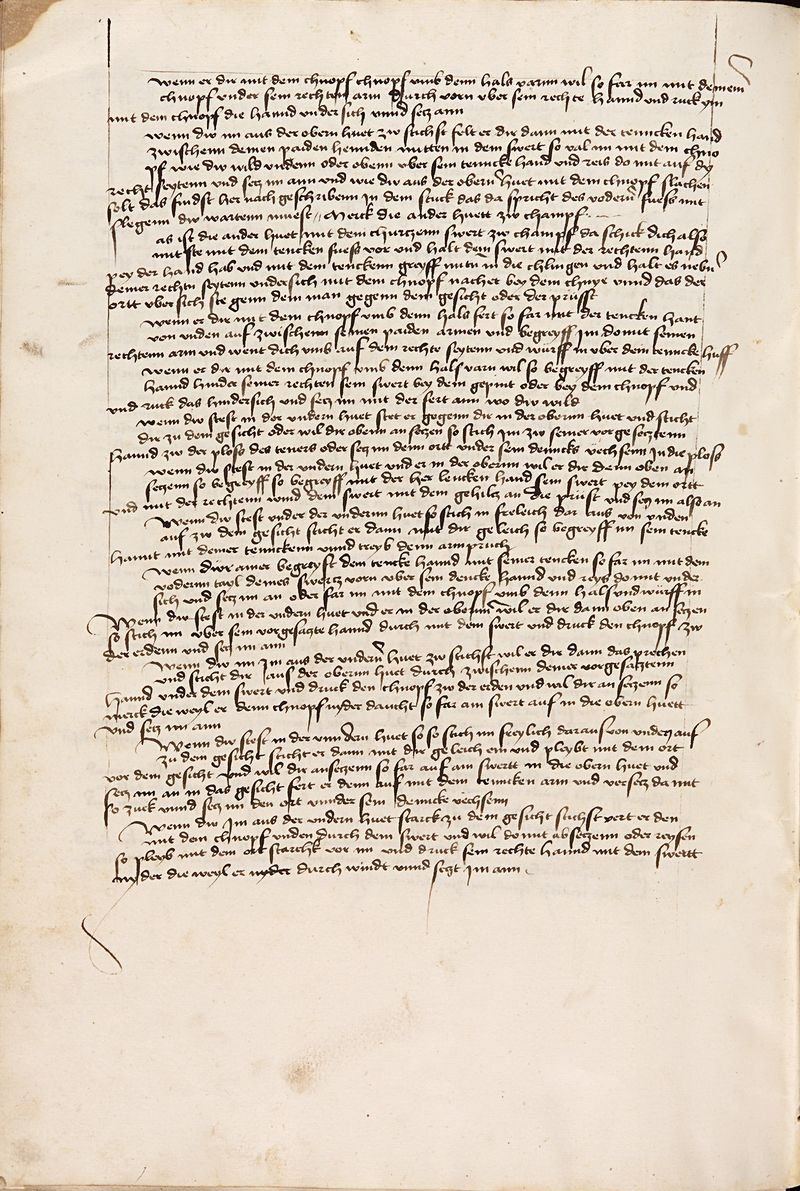 wenn er dir mit dem chnopf chnopf umb denn hals varnn wil so far im mit deinem
chnopf under sein rechten arm durch vorn uber sein rechte hannd und ruck im
mit dem chnopf die hannd undersich unnd secz ann
wenn dw im aus der obern huet zw stichst felt er dir dann mit der tenncken hand
zwischenn deinen paiden henndn mitten in dem swert so val im mit dem chno
pf wie dw wild undenn oder obenn uber sein tenncke hand und reis do mit auf dy
recht seytenn und secz im ann und wie dw aus der obern huet mit dem chnopf slachen
solt das findst her nach geschribenn in dem stuck das da spricht des vodern fuess mit
slegenn dw wartenn muest Merck die ander huett zw champf
as ist die ander huet mit dem churczenn swert zw champf da schick dich also
mit ste mit dem tencken fuess vor und halt dein swert mit der rechtenn hand
pey der hannd hab und mit dem tenckenn greyff mittn in die chlingen und halt es nebn
deiner rechtn seytenn undersich mit dem chnopf nachet bey dem chnye unnd das der
ortt ubersich ste genn dem man gegenn dem gesicht oder der prüsst
wenn er dir mit dem chnopf umb denn hals fert so far mit der tencken hant
von unden auf zwischenn seinen paiden armen und begreyff im domit seinen
rechtenn arm und went dich umb auf dem rechte seytenn und würff in uber dein tenncke huff
wenn er dir mit dem chnopf umb denn hals varn wil so begreyff mit der tencken
hannd hinder seiner rechten sein swert bey dem gepint oder bey dem chnopf und
und ruck das hindersich und secz im mit der fert ann wo dw wild
wenn dw stest in der undern huet stet er gegenn dir in der obernn huet und sticht
dir zu dem gesicht oder wil dir obenn an seczen so stich im zw seiner vorgesecztenn
hannd zw der ploss des teners oder secz im denn ort under sein denncks vechsenn in die ploss
wenn dw stest in der undern huet und er in der obernn wil er dir denn oben an
seczenn so begreyff so begreyff mit der her lencken hand sein swert pey dem ortt
und mit der rechtenn wind dein swert mit dem gehilcz an die prüst und secz im also an
Wenn dw stest under der undernn huet so stich im freleich dar aus von unden
auf zw dem gesicht sticht er dann mit dir geleich so begreyff im sein tencke
hannt mit deiner tennckenn unnd treyb denn armpruch
wenn dwr ainer begreyft dein tencke hannd mit seiner tencken so far im mit dem
vodernn tayl deines swertz vorn uber sein dencke hannd und reys do mit under
sich und secz im an oder far im mit dem chnopf umb denn hals und würff in
Wenn dw stest in der undern huet und er in der obernn wil er dir dann oben an seczen
so stich im uber sein vorgesaczte hannd durch mit dem swert und druck den chnopf zw
der erdenn und secz im ann
Wenn dw im Im aus der undern huet zw stichst wil er dir dann das prechen
und sticht dir auf der obernn huet durch zwischenn deiner vorgesacztenn
hannd under dem swert und druckt den chnopf zw der erden und wil dir an seczenn so
merck die weyl er denn chnopf nyder daucht so far am swert auf in die obern huett
und secz im ann
Wenn dw stest in der unndern huet so so stich im freylich daraus von unden auf
zu dem gesicht sticht er dann mit dir geleich ein und pleybt mit dem ort
vor dem gesicht und wil dir anseczenn so far auf am swertt in die obern huet und
secz im an in das gesicht fert er denn auf mit dem tenncken arm und versecz da mit
so zuck unnd secz im den ort unnder sein denncke vechsenn
Wenn dw Im aus der undern huet starck zu dem gesicht stichst vert er den
mit dem chnopf unden durch dein swert und wil domit abseczenn oder reysen
so pleyb mit dem ort starchk vor im und druck sein rechte hannd mit dem swertt
nyder die weyl er nyder durch windt unnd seczt Im ann